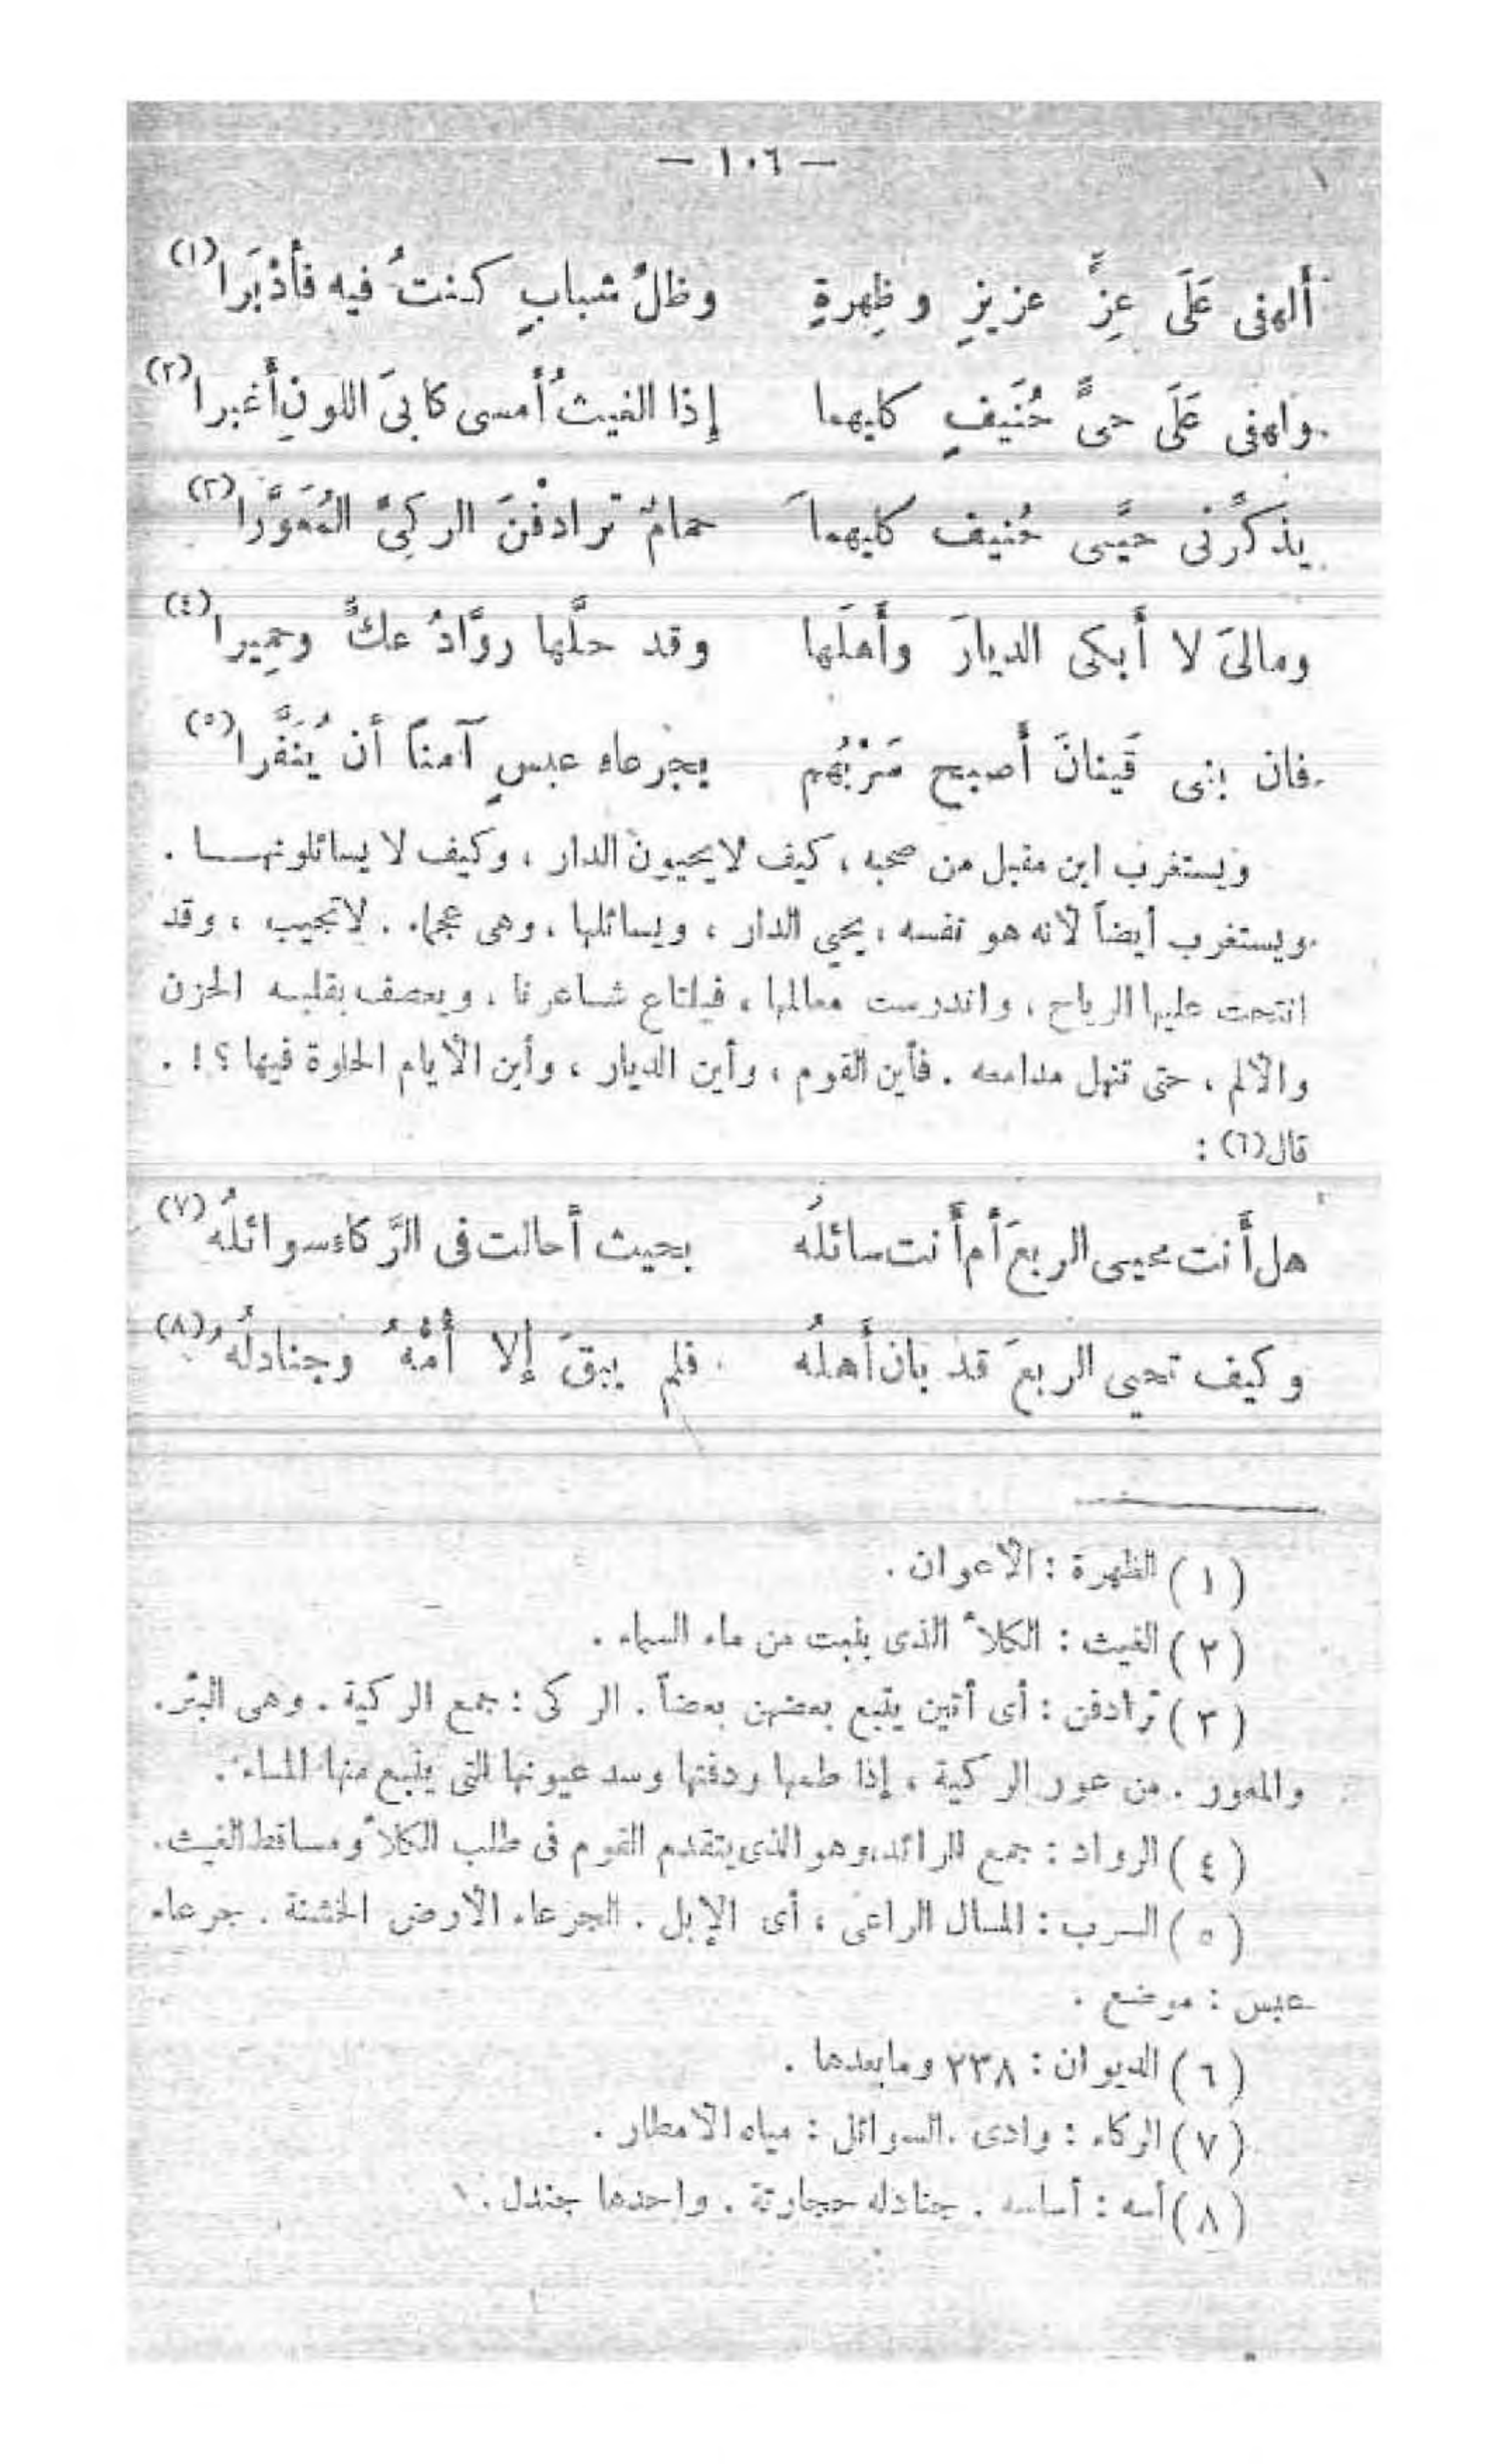 — ١٠٦ —
ألهفى عَلَى عِزٍّ عزيزٍ وظِهرةٍ وظلِّ شبابٍ كنتُ فيه فأدْبَرا(١)
ولهفى عَلَى حىَّ حُنَيفٍ كليهما إذا الغيثُ أمسى كابىَ اللونِ أغبرا(٢)
يذكِّرنى حيَّى حُنيف كليهما حمامٌ ترادفْنَ الركىَّ المُعَوَّرا(٣)
ومالىَ لا أبكى الديارَ وأهلَها وقد حلَّها روَّادُ عكٍّ وحِميرا(٤)
فان بنى قَينانَ أصبح سَرْبُهم بجرعاء عبسٍ آمناً أن يُنَفَّرا(٥)
ويستغرب ابن مقبل من صحبه ، كيف لا يحيون الدار ، وكيف لا يسائلونهـــا .
ويستغرب أيضاً لأنه هو نفسه ، يحيي الدار ، ويسائلها ، وهى عجماء . لاتجيب ، وقد
انتحت عليها الرياح ، واندرست معالمها ، فيلتاع شاعرنا ، ويعصف بقلبه الحزن
والألم ، حتى تنهل مدامعه . فأين القوم ، وأين الديار ، وأين الأيام الحلوة فيها ؟ ! .
قال(٦) :
هل أنت محيى الربعَ أم أنت سائلُه بحيث أحالت فى الرَّكاء سوائلُه(٧)
وكيف تحيى الربعَ قد بان أهلُه فلم يبقَ إلا أُسُّهُ وجنادلُه(٨)
(١) الظهرة : الأعوان .
(٢) الغيث : الكلأ الذى ينبت من ماء السماء .
(٣) ترادفن : أى أتين يتبع بعضهن بعضاً . الركى : جمع الركية . وهى البئر .
والمعور . من عور الركية ، إذا طمها ودفنها وسد عيونها التى ينبع منها الماء .
(٤) الرواد : جمع الرائد، وهو الذى يتقدم القوم فى طلب الكلأ ومساقط الغيث .
(٥) السرب : المال الراعى ، أى الإبل . الجرعاء الأرض الخشنة . جرعاء
عبس : موضع .
(٦) الديوان : ٢٣٨ ومابعدها .
(٧) الركاء : وادى . السوائل : مياه الأمطار .
(٨) أسه : أساسه . جنادله حجارتة . واحدها جندل .